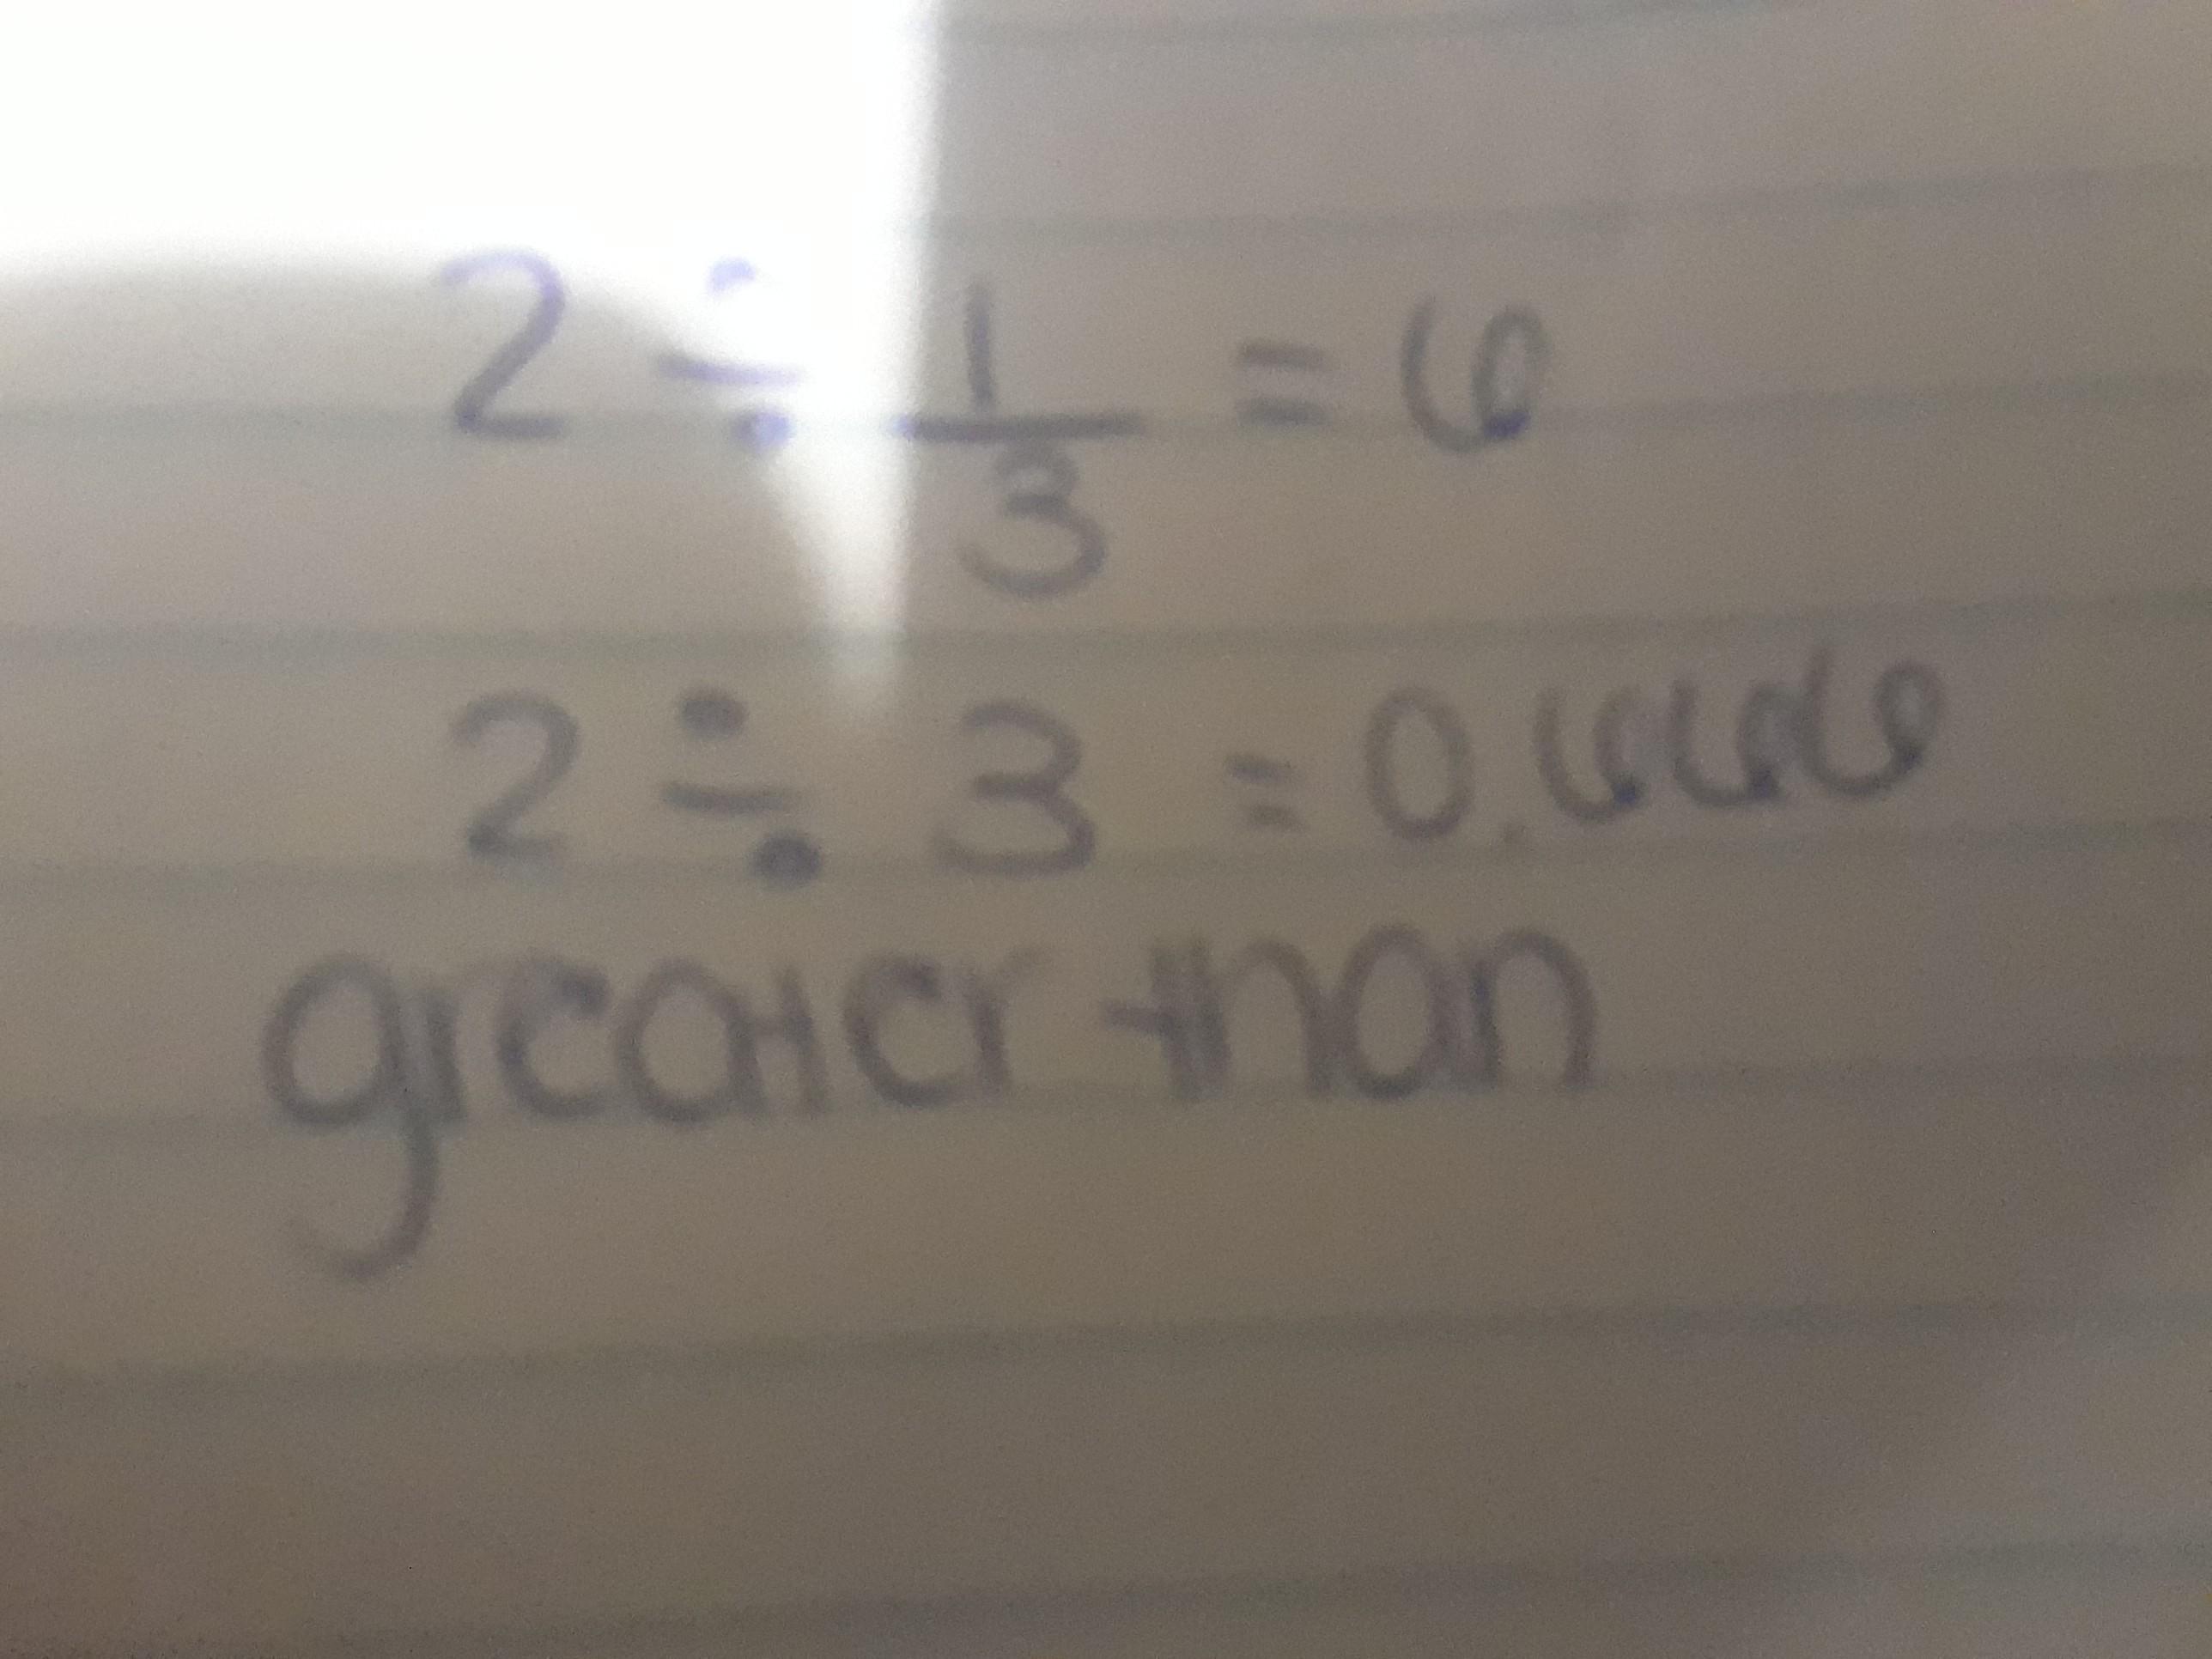 2 ÷ 1/3 = 6
2 ÷ 3 = 0.666
greater than